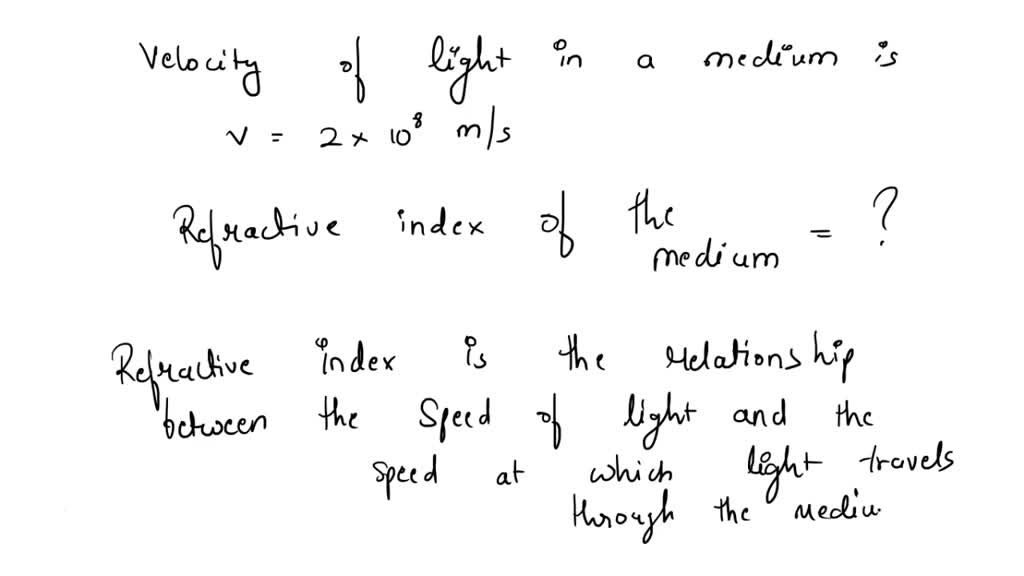 Velocity of light in a medium is
v = 2 × 10⁸ m/s
Refractive index of the
medium = ?
Refractive index is the relationship
between the speed of light and the
speed at which light travels
through the mediu